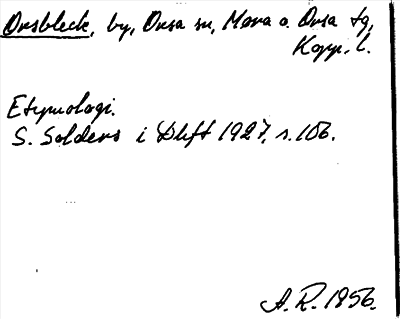 Orsbleck, by, Orsa sn, Mora o. Orsa tg,
Kopp. l.
Etymologi.
S. Solders i Dhft 1927, s. 106.
A. R. 1956.